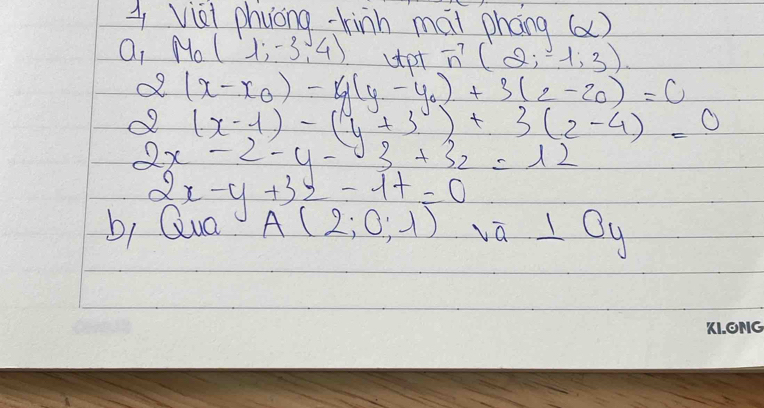 1, Viết phương trình mặt phẳng (α)
a, M₀( 1;-3;4) vtpt n⃗ ( 2;-1;3).
2 (x-x₀) - (y-y₀) + 3(z-z₀) = 0
2 (x-1) - (y+3) + 3(z-4) = 0
2x - 2 - y - 3 + 3z = 12
2x - y + 3z - 17 = 0
b, Qua A (2;0;1) và ⊥ Oy
KLONG